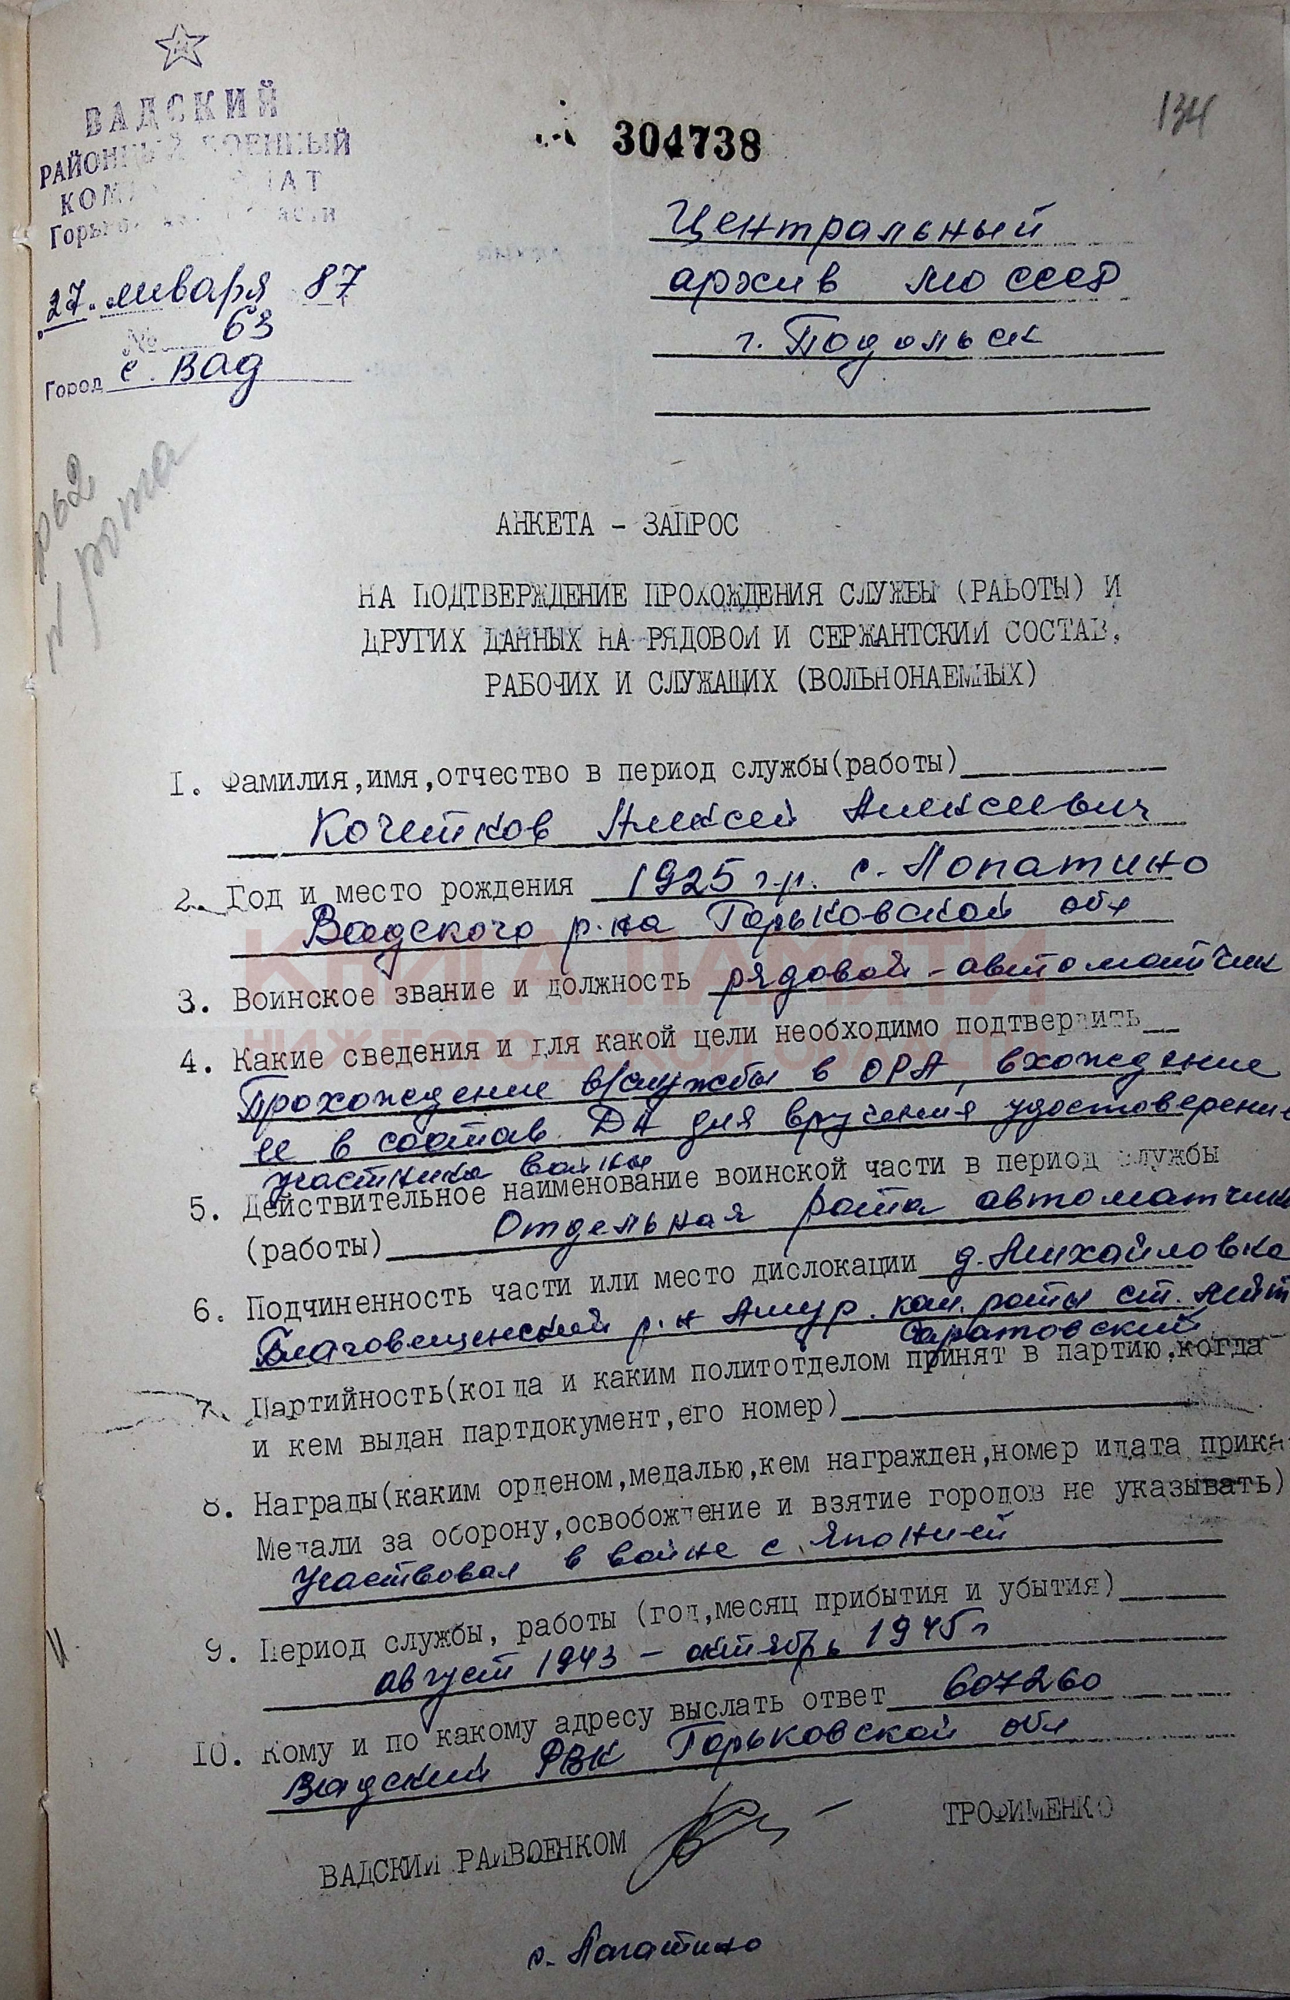 ВАДСКИЙ
РАЙОННЫЙ ВОЕННЫЙ
КОМИССАРИАТ
Горьковской области
27. января 87
№ 63
Город с. Вад
134
304738
Центральный
архив МО СССР
г. Подольск
рота
АНКЕТА - ЗАПРОС
НА ПОДТВЕРЖДЕНИЕ ПРОХОЖДЕНИЯ СЛУЖБЫ (РАБОТЫ) И
ДРУГИХ ДАННЫХ НА РЯДОВОЙ И СЕРЖАНТСКИЙ СОСТАВ,
РАБОЧИХ И СЛУЖАЩИХ (ВОЛЬНОНАЕМНЫХ)
1. Фамилия,имя,отчество в период службы(работы)
Кочетков Алексей Алексеевич
2. Год и место рождения 1925 г.р. с. Лопатино
Вадского р.на Горьковской обл
КНИГА ПАМЯТИ
НИЖЕГОРОДСКОЙ ОБЛАСТИ
3. Воинское звание и должность рядовой - автоматчик
4. Какие сведения и для какой цели необходимо подтвердить
Прохождение в/службы в ОРА, вхождение
ее в состав ДА для вручения удостоверения
участника войны
5. Действительное наименование воинской части в период службы
(работы) Отдельная рота автоматчик
6. Подчиненность части или место дислокации д. Михайловка
Благовещенский р.н Амур. ком. роты ст. лейт
Саратовский
7. Партийность(когда и каким политотделом принят в партию,когда
и кем выдан партдокумент,его номер)
8. Награды(каким орденом,медалью,кем награжден,номер идата прика
Медали за оборону,освобождение и взятие городов не указывать)
Участвовал в войне с Японией
9. Период службы, работы (год,месяц прибытия и убытия)
август 1943 - октябрь 1945 г
10. Кому и по какому адресу выслать ответ 607260
Вадский РВК Горьковской обл
ВАДСКИЙ РАЙВОЕНКОМ ТРОФИМЕНКО
с. Лопатино